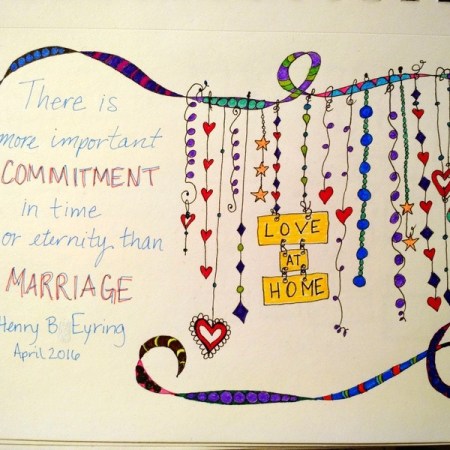 There is
more important
COMMITMENT
in time
or eternity than
MARRIAGE
Henry B Eyring
April 2016
LOVE
AT
HOME